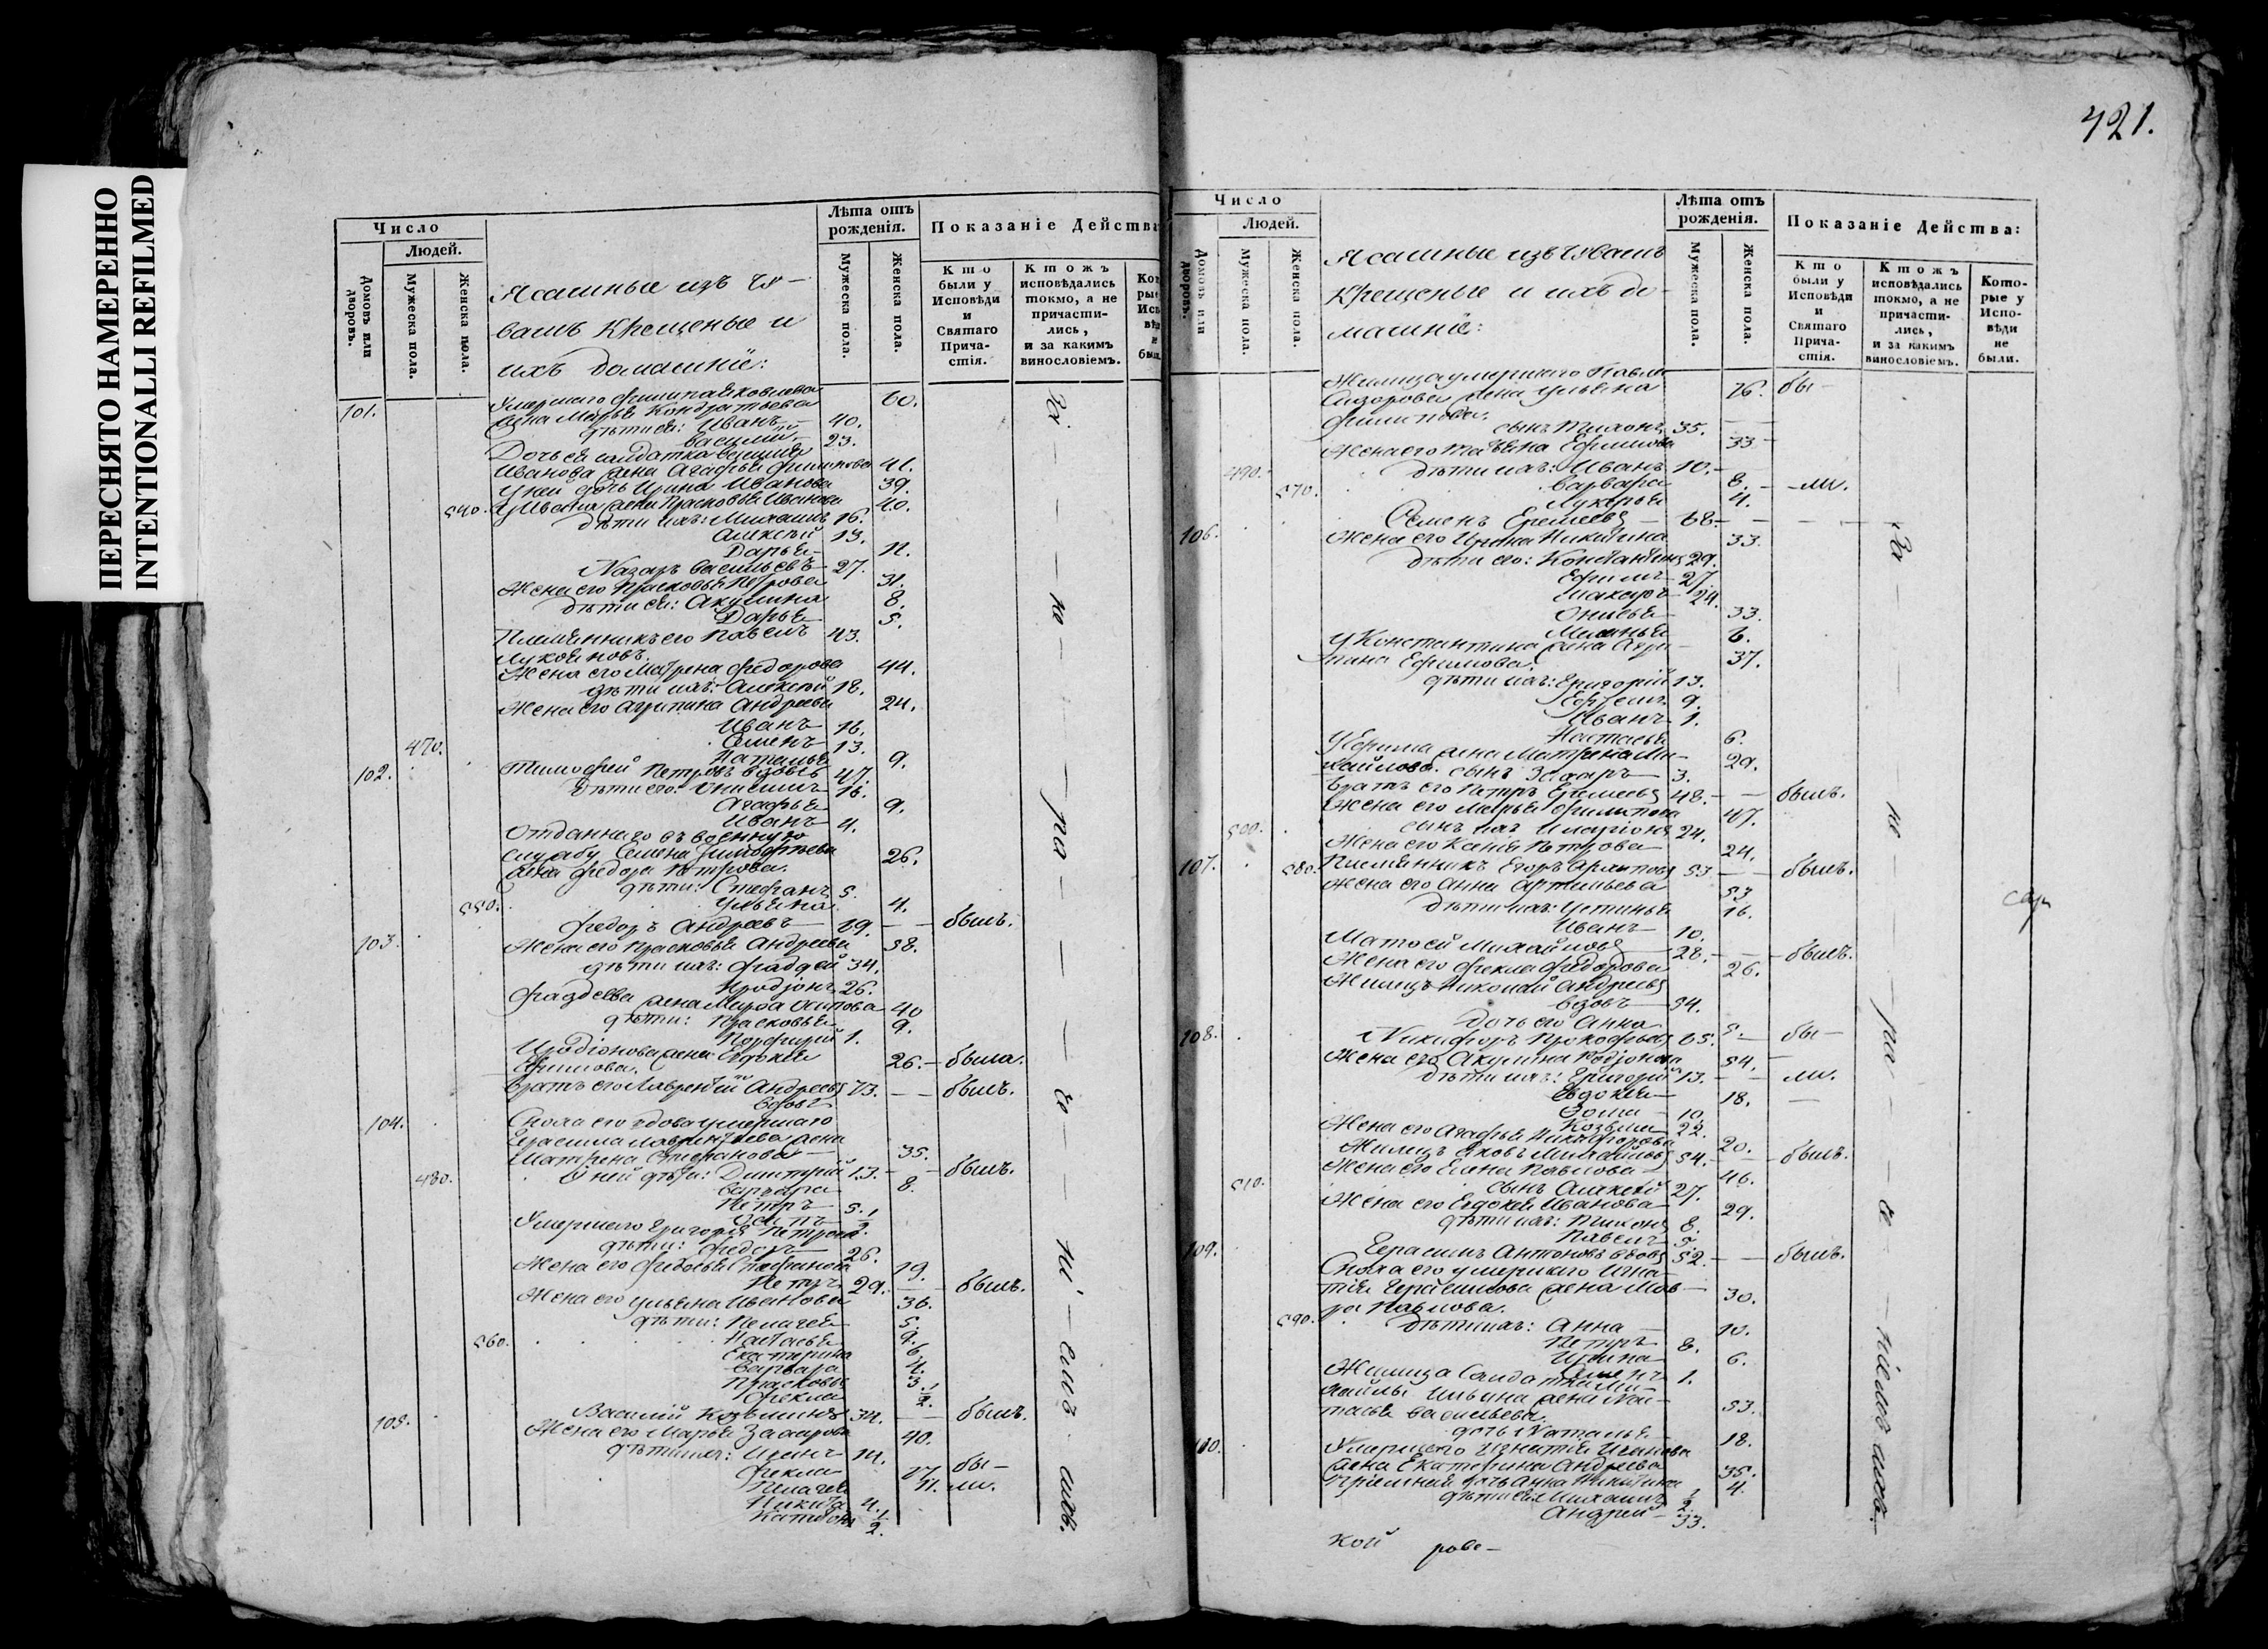 ПЕРЕСНЯТО НАМЕРЕННО
INTENTIONALLI REFILMED
Число
Людей.
Домовъ или дворовъ.
Мужеска пола.
Женска пола.
Ясашные изъ чу-
вашъ Крещеные и
ихъ домашніе:
Лѣта отъ рожденія.
Мужеска пола.
Женска пола.
Показаніе Действа
Кто были у Исповѣди и Святаго Причастія.
Ктожъ исповѣдались токмо, а не причастились, и за какимъ винословіемъ.
101.
Умершаго Филипа Яковлева 60.
жена Марья Кондратьева
дѣти ея: Иванъ 40.
Василий 23.
Дочь ея солдатка
Иванова жена Агафья Филипова 41.
У ней дочь Ирина Иванова 39.
540. У Ивана жена Прасковья Иванова 40.
дѣти ихъ: Михаилъ 16.
Алексѣй 13.
Дарья 11.
Назаръ Васильевъ 27.
Жена его Прасковья Петрова 31.
дѣти ея: Акулина 8.
Дарья 5.
Племянникъ его Павелъ 43.
Лукояновъ.
Жена его Матрена Федорова 44.
дѣти ихъ: Алексѣй 18.
Жена его Агрипина Андреева 24.
Иванъ 16.
470. Семенъ 13.
Наталья 9.
102. Тимофей Петровъ вдовъ 47.
дѣти его: Онисимъ 16.
Агафья 9.
Иванъ 4.
Отданнаго въ военную
службу Семена Тимофѣева 26.
жена Федора Петрова.
дѣти: Стефанъ 5.
550. Ульяна 4.
103. Федоръ Андреевъ 69. былъ.
Жена его Прасковья Андреева 58.
дѣти ихъ: Фаддей 34.
Иродіонъ 26.
Фаддеева жена Марфа Осипова 40
дѣти: Прасковья 9.
Порфирій 1.
Иродіонова жена Евдокия 26. была.
Ефимова.
104. Братъ его Лаврентій Андреевъ 73. былъ.
вдовъ
Сноха его вдова умершаго
Герасима Лаврентьева жена
Матрена Стефанова 35.
480. У ней дѣти: Димитрий 13. былъ.
Варвара 8.
Петръ 5.
Осипъ 1/2.
Умершаго Григорья Петрова
дѣти: Федоръ 26.
Жена его Федосья Стефанова 19.
Петръ 29. былъ.
Жена его Ульяна Иванова 36.
дѣти: Пелагея 5.
560. Настасья 9.
Екатерина 6
Варвара 4.
Прасковья 3.
Фекла 1/2.
105. Василій Козьминъ 34. былъ.
Жена его Марья Захарова 40.
дѣти ихъ: 14.
Фекла 17 бы-
Пелагея 11. ли.
Никита 4.
1/2.
421.
Число
Людей.
Домовъ или дворовъ.
Мужеска пола.
Женска пола.
Ясашные изъ чувашъ
Крещеные и ихъ до-
машніе:
Лѣта отъ рожденія.
Мужеска пола.
Женска пола.
Показаніе Действа:
Кто были у Исповѣди и Святаго Причастія.
Ктожъ исповѣдались токмо, а не причастились, и за какимъ винословіемъ.
Которые у Исповѣди не были.
Жилица умершаго Павла
Сидорова жена Ульяна 76. бы-
Филипова.
сынъ Тихонъ 35.
Жена его Татьяна Ефимова 33
490. дѣти ихъ: Иванъ 10.
570. Варвара 8. ли.
Лукерья 4.
106. Семенъ Еремеевъ 68
Жена его Ирина Никитина 33.
дѣти его: Константинъ 29.
Ефимъ 27.
Макаръ 24.
Онисья 33.
Маланья 6.
У Константина жена Агри-
пина Ефимова. 37.
дѣти ихъ: Григорий 13.
Ефремъ 9.
Иванъ 1.
Настасья 6.
У Ефима жена Матрена Ми- 29.
хайлова. сынъ Захаръ 3.
Братъ его Петръ Еремеевъ 48. былъ.
Жена его Марья Филипова 47.
500. сынъ ихъ Иларіонъ 24.
Жена его Ксенія Петрова 24.
107. 580. Племянникъ Егоръ Архиповъ 53 былъ.
Жена его Анна Артемьева 53
дѣти ихъ: Устинья 16.
Иванъ 10.
Матвѣй Михайловъ 28. былъ.
Жена его Фекла Федорова 26.
Жилецъ Николай Андреевъ
вдовъ 54.
дочь его Анна 5.
108. Никифоръ Прокофьевъ 65. бы-
Жена его Акулина Родіонова 54.
дѣти ихъ: Григорій 13. ли.
Евдокия 18.
Фома 10.
Козьма 22.
Жена его Агафья Никифорова 20.
Жилецъ Яковъ Михайловъ 54. былъ.
Жена его Елена Павлова 46.
510. сынъ Алексѣй 27.
Жена его Евдокия Иванова 29.
дѣти ихъ: Тихонъ 8.
Павелъ 5
109. Герасимъ Антоновъ вдовъ 52. былъ.
Сноха его умершаго Игна-
тія Герасимова жена Мав- 30.
ра Павлова.
590. дѣти ихъ: Анна 10.
Петръ 8.
Ирина 6.
Семенъ 1.
Жилица Солдатка Ми-
хайлы Ильина жена Нас- 53.
тасья Васильева.
дочь Наталья 18.
110. Умершаго Игнатія Иванова
жена Екатерина Андреева 35.
Пріемная дочь Анна Никитина 4.
дѣти ея Михаилъ 1/2.
Андрей 33.
кой рова-